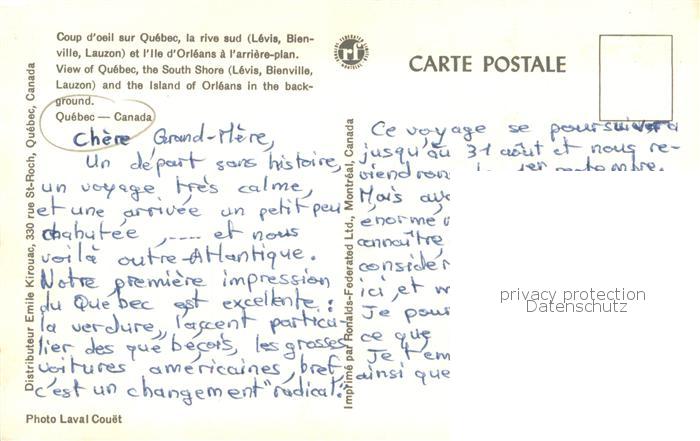 Coup d'oeil sur Québec, la rive sud (Lévis, Bien-
ville, Lauzon) et l'Ile d'Orléans à l'arrière-plan.
View of Québec, the South Shore (Lévis, Bienville,
Lauzon) and the Island of Orléans in the back-
ground.
Québec — Canada
CARTE POSTALE
Distributeur Emile Kirouac, 330 rue St-Roch, Québec, Canada
Chère Grand-Mère,
Un départ sans histoire,
un voyage très calme,
et une arrivée un petit peu
chahutée, .... et nous
voilà outre-Atlantique.
Notre première impression
du Québec est excellente :
la verdure, l'accent particu-
lier des québecois, les grosses
voitures américaines, bref
c'est un changement "radical".
Photo Laval Couët
Imprimé par Ronalds-Federated Ltd., Montréal, Canada
Ce voyage se poursuivra
jusqu'au 31 août et nous re-
viendron
Mais aux
énorme
connaître,
considér
ici, et
Je pour
ce que
Je t'em
ainsi que
privacy protection
Datenschutz